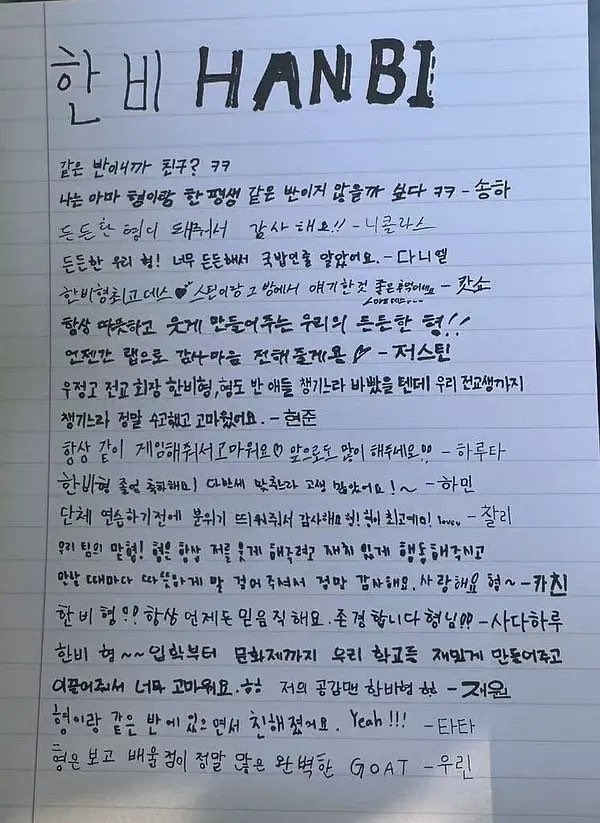 한비 HANBI
같은 반이니까 친구? ㅋㅋ
나는 아마 형이랑 한평생 같은 반이지 않을까 싶다 ㅋㅋ - 송하
든든한 형이 돼줘서 감사해요!! - 니콜라스
든든한 우리 형! 너무 든든해서 국밥인줄 알았어요. - 다니엘
한비형최고데스 ♥ 스틴이랑 그 방에서 얘기한것 좋은추억이에요 - 캇쇼
항상 따뜻하고 웃게 만들어주는 우리의 든든한 형!!
언젠간 랩으로 감사마음 전해줄게용 - 저스틴
우정고 전교 회장 한비형, 형도 반 애들 챙기느라 바빴을 텐데 우리 전교생까지
챙기느라 정말 수고했고 고마웠어요. - 현준
항상 같이 게임해줘서고마워요♡ 앞으로도 많이 해주세요!! - 하루타
한비형 졸업 축하해요! 다반세 맞추느라 고생 많았어요!~ - 하민
단체 연습하기전에 분위기 띄워줘서 감사해요 형! 형이 최고예요! - 찰리
우리 팀의 맏형! 형은 항상 저를 웃게 해주려고 재치 있게 행동해주시고
만날 때마다 따뜻하게 말 걸어 주셔서 정말 감사해요. 사랑해요 형~ - 카친
한비형!! 항상 언제든 믿음직해요. 존경합니다 형님!! - 사다하루
한비 형~~ 입학부터 문화제까지 우리 학교를 재밌게 만들어주고
이끌어줘서 너무 고마워요. ㅎㅎ 저의 공감맨 한비형 ㅎㅎ - 재원
형이랑 같은 반에 있으면서 친해졌어요. Yeah!!! - 타타
형은 보고 배울점이 정말 많은 완벽한 GOAT - 우린